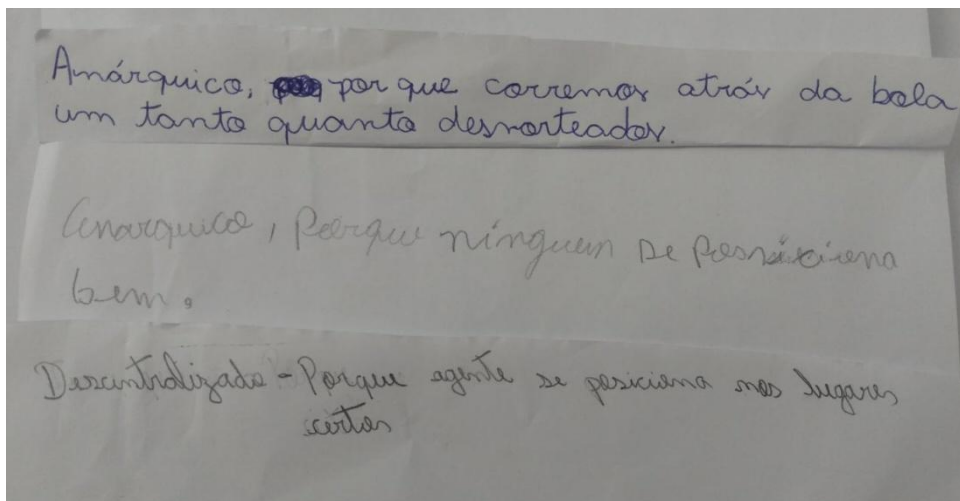 Anárquico, por que corremos atrás da bola
um tanto quanto desnorteados.
Anarquico, Porque ninguem se possiciona
bem.
Descentralizado - Porque agente se posiciona nos lugares
certos